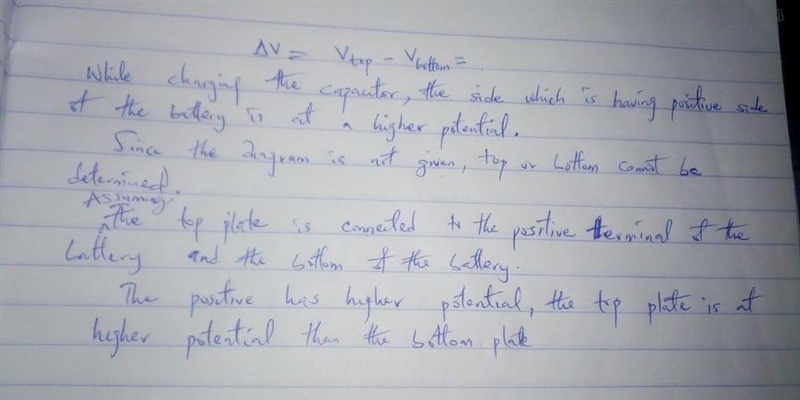 ΔV = V top - V bottom =
While charging the capacitor, the side which is having positive side
of the battery is at a higher potential.
Since the diagram is not given, top or bottom cannot be
determined.
Assuming
^ The top plate is connected to the positive terminal of the
battery and the bottom of the battery.
The positive has higher potential, the top plate is at
higher potential than the bottom plate